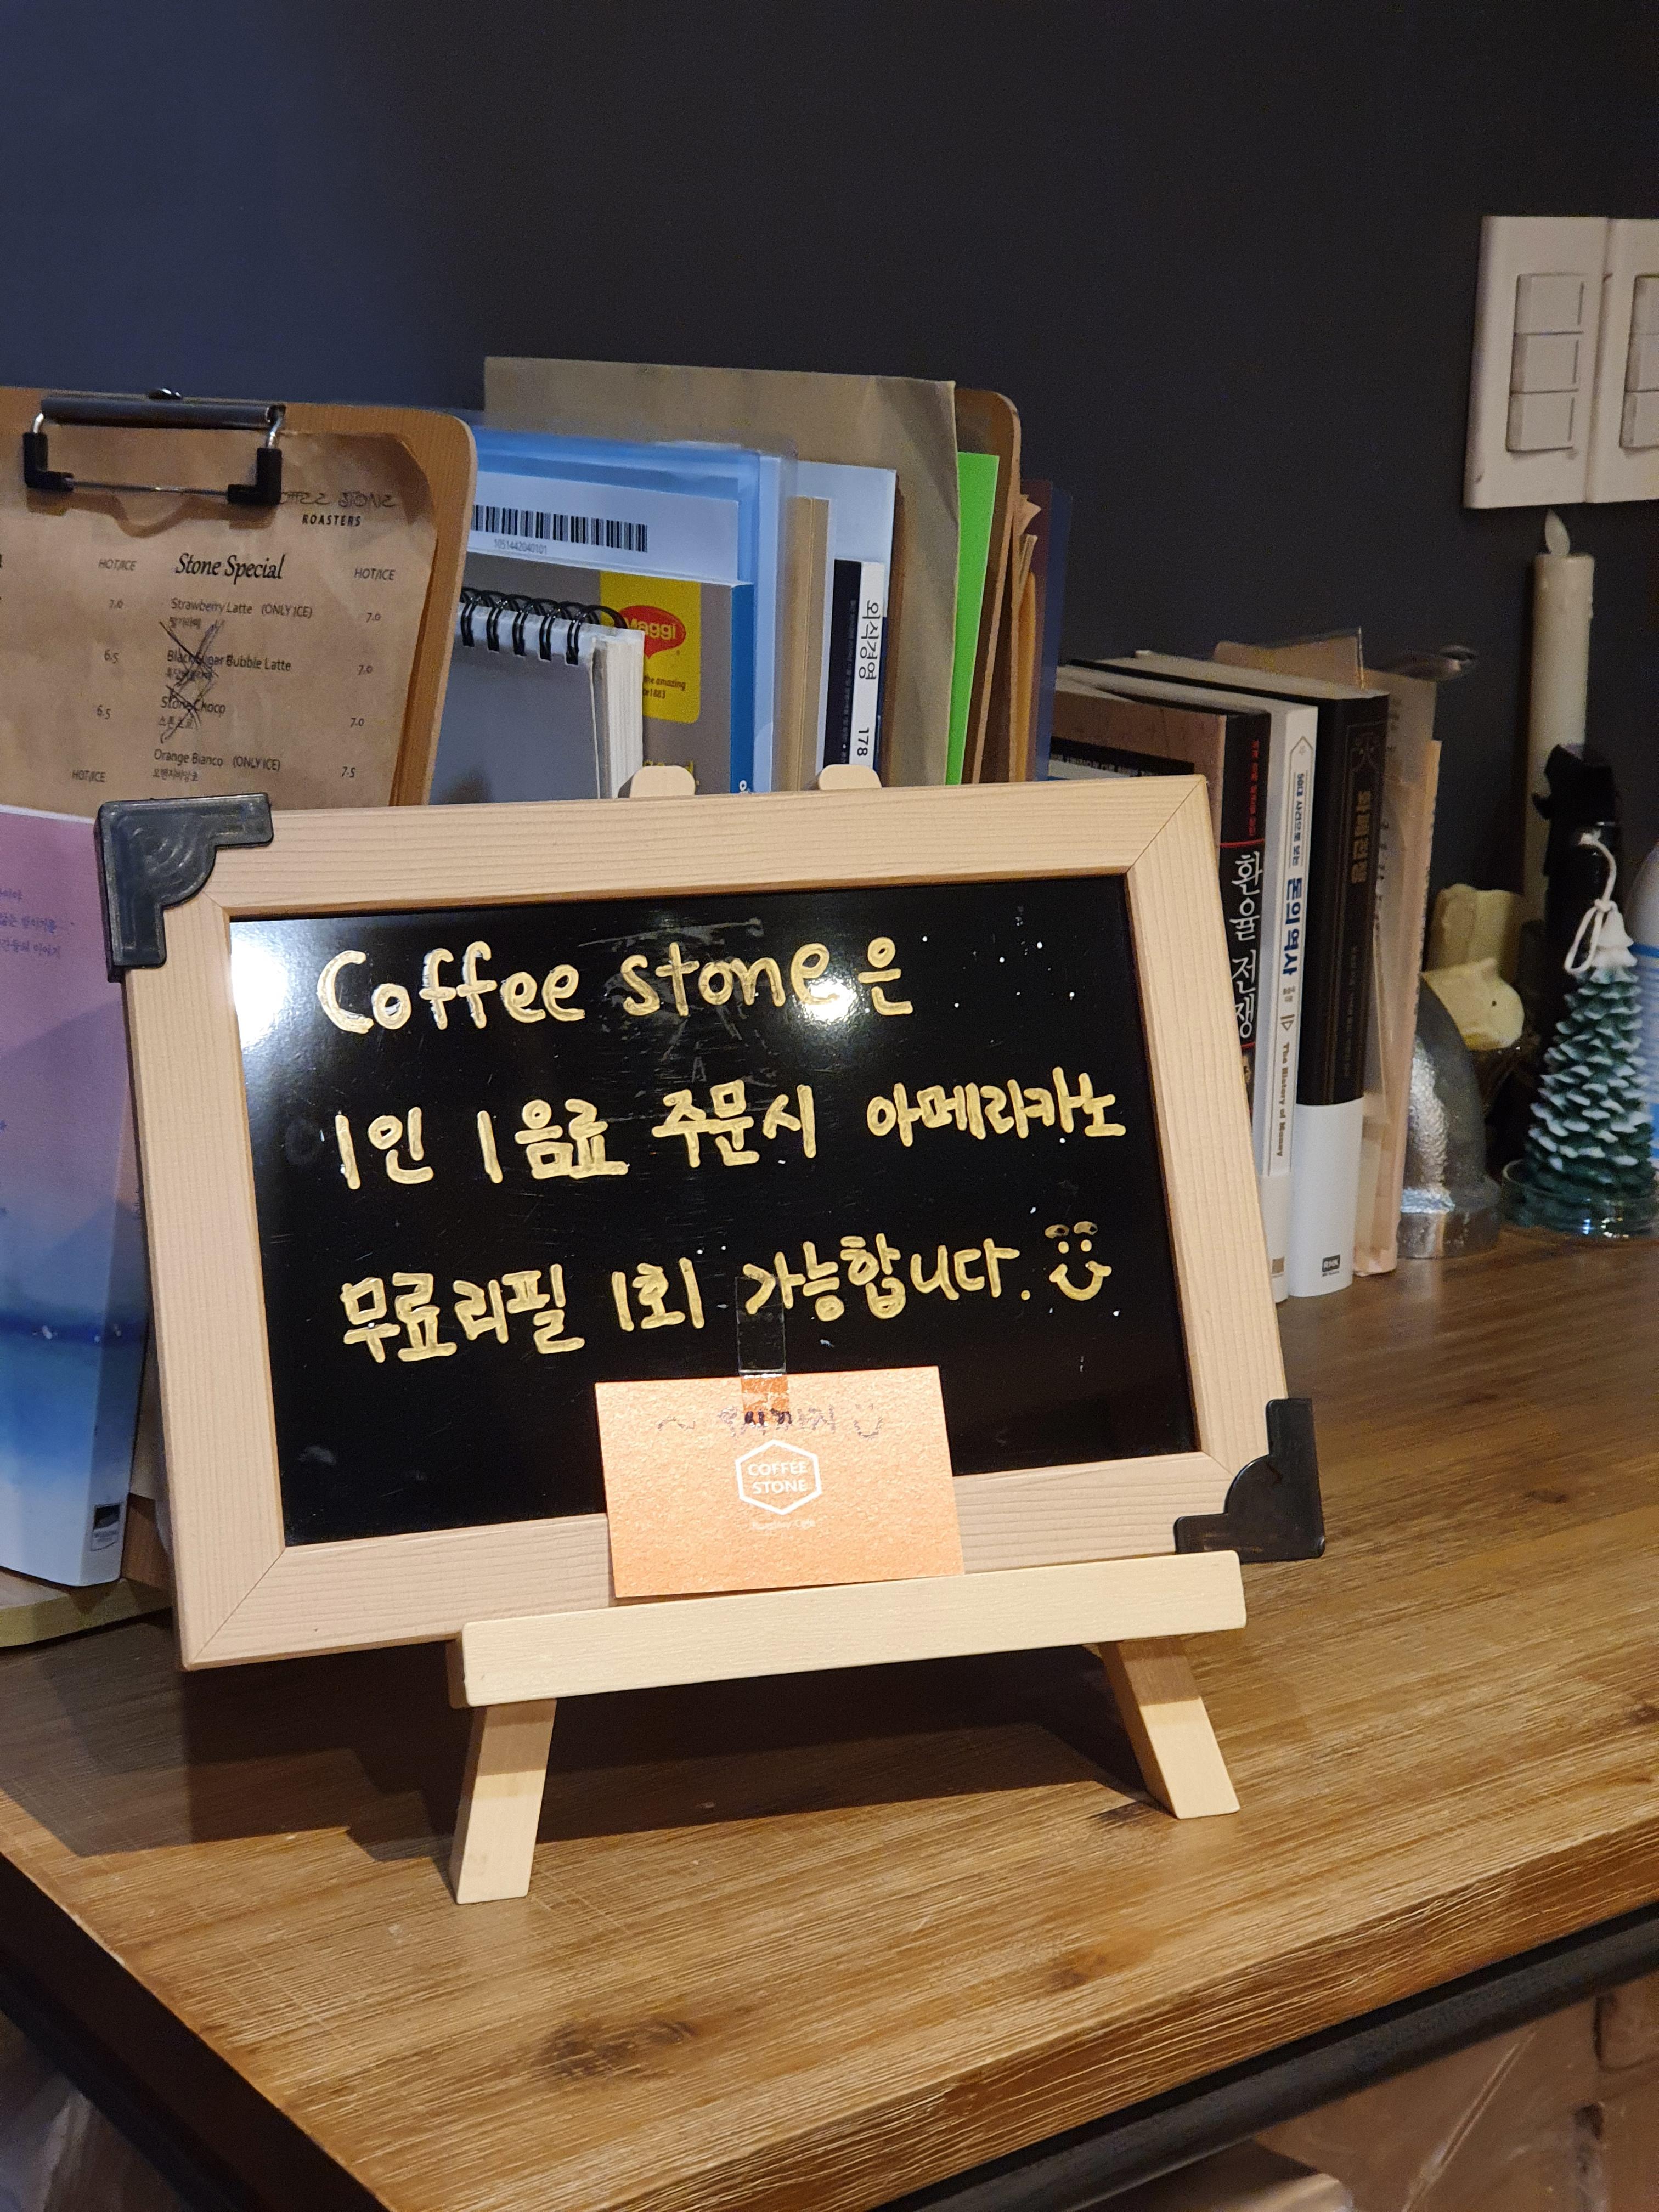 Coffee stone은
1인 1음료 주문시 아메리카노
무료리필 1회 가능합니다.
COFFEE
STONE
COFFEE STONE
ROASTERS
HOT/ICE
Stone Special
HOT/ICE
7.0
Strawberry Latte (ONLY ICE)
7.0
딸기라떼
6.5
Black Sugar Bubble Latte
7.0
6.5
Stone Choco
7.0
스톤초코
Orange Bianco (ONLY ICE)
7.5
오렌지비앙코
HOT/ICE
1051442040101
Maggi
외식경영
178
환율전쟁
50대 사건으로 보는
돈의 역사
The History of Money
화폐전쟁
RHK